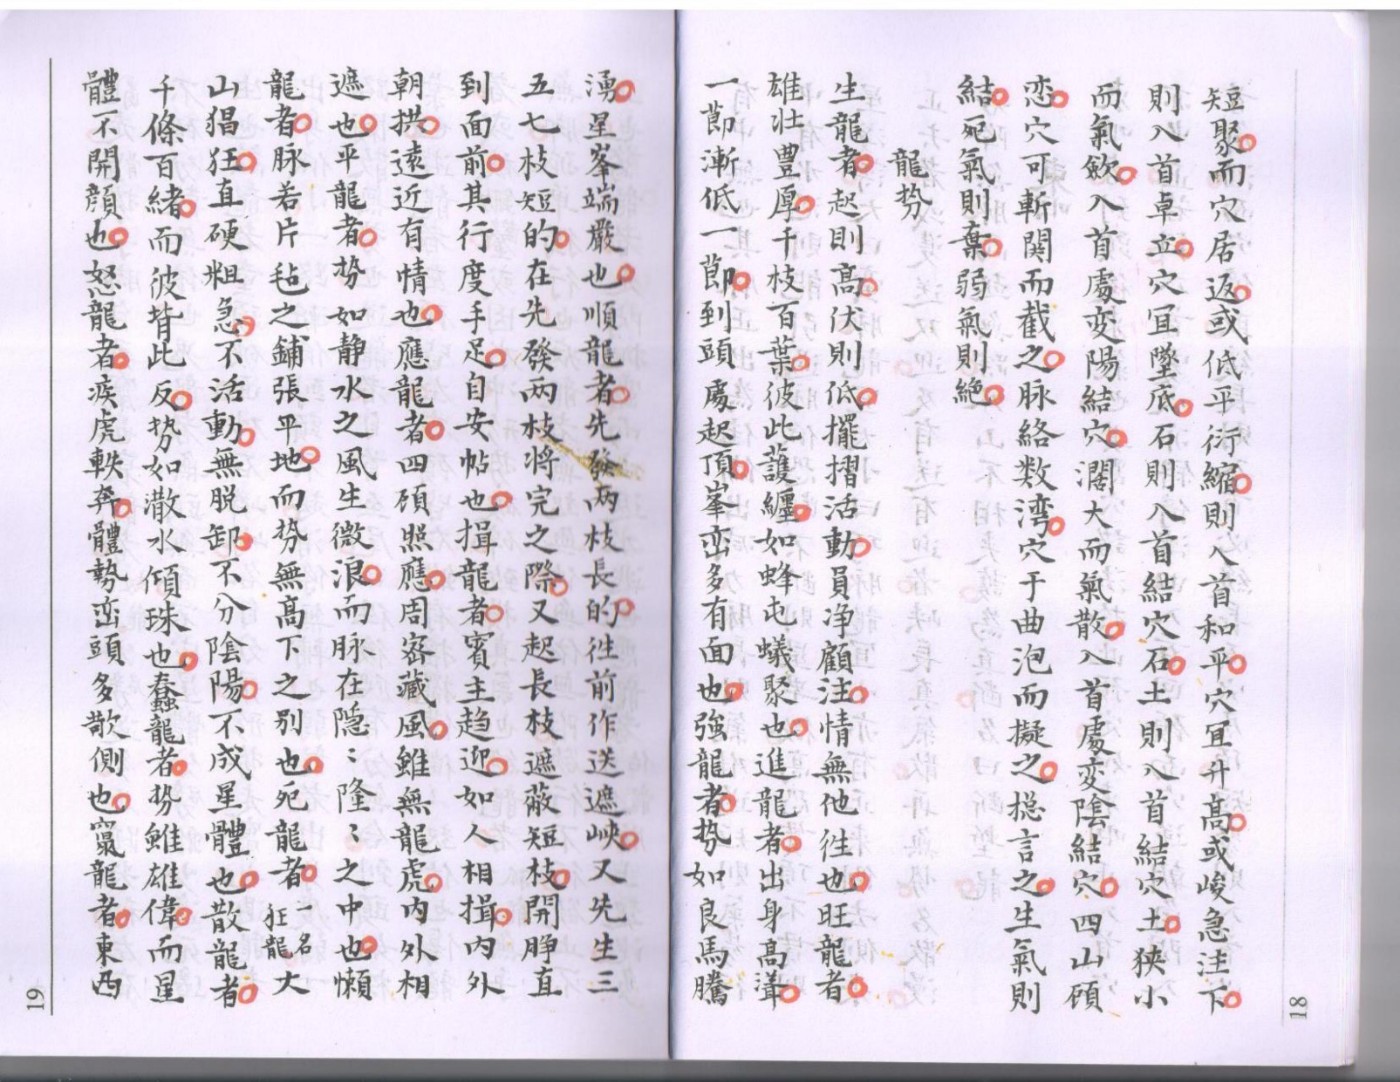 短聚而穴居返或低平衍縮則入首和平穴宜升高或峻急注下
則入首卓立穴宜墜底石則入首結穴石土則入首結穴土狹小
而氣歛入首處变陽結穴濶大而氣散入首處变陰結穴四山顧
恋穴可斬関而截之脉絡数湾穴于曲泡而擬之捴言之生氣則
結死氣則棄弱氣則絶
龍势
生龍者起則高伏則低擺摺活動員净顧注情無他徃也旺龍者
雄壮豊厚千枝百葉彼此護纏如蜂屯蟻聚也進龍者出身高聳
一節漸低一節到頭處起頂峯峦多有面也强龍者势如良馬騰
湧星峯端嚴也順龍者先發两枝長的徃前作送遮峽又先生三
五七枝短的在先發两枝將完之際又起長枝遮蔽短枝開睁直
到面前其行度手足自安帖也揖龍者賓主趋迎如人相揖内外
朝拱遠近有情也應龍者四顧照應周密藏風雖無龍虎内外相
遮也平龍者势如静水之風生微浪而脉在隠〻隆〻之中也懶
龍者脉若片毡之鋪張平地而势無高下之别也死龍者名狂龍大
山猖狂直硬粗急不活動無脱卸不分陰陽不成星體也散龍者
千條百緒而彼背此反势如潑水傾珠也蠢龍者势雖雄偉而星
體不開顔也怒龍者疾虎軼奔體勢峦頭多欹側也竄龍者東西
18
19